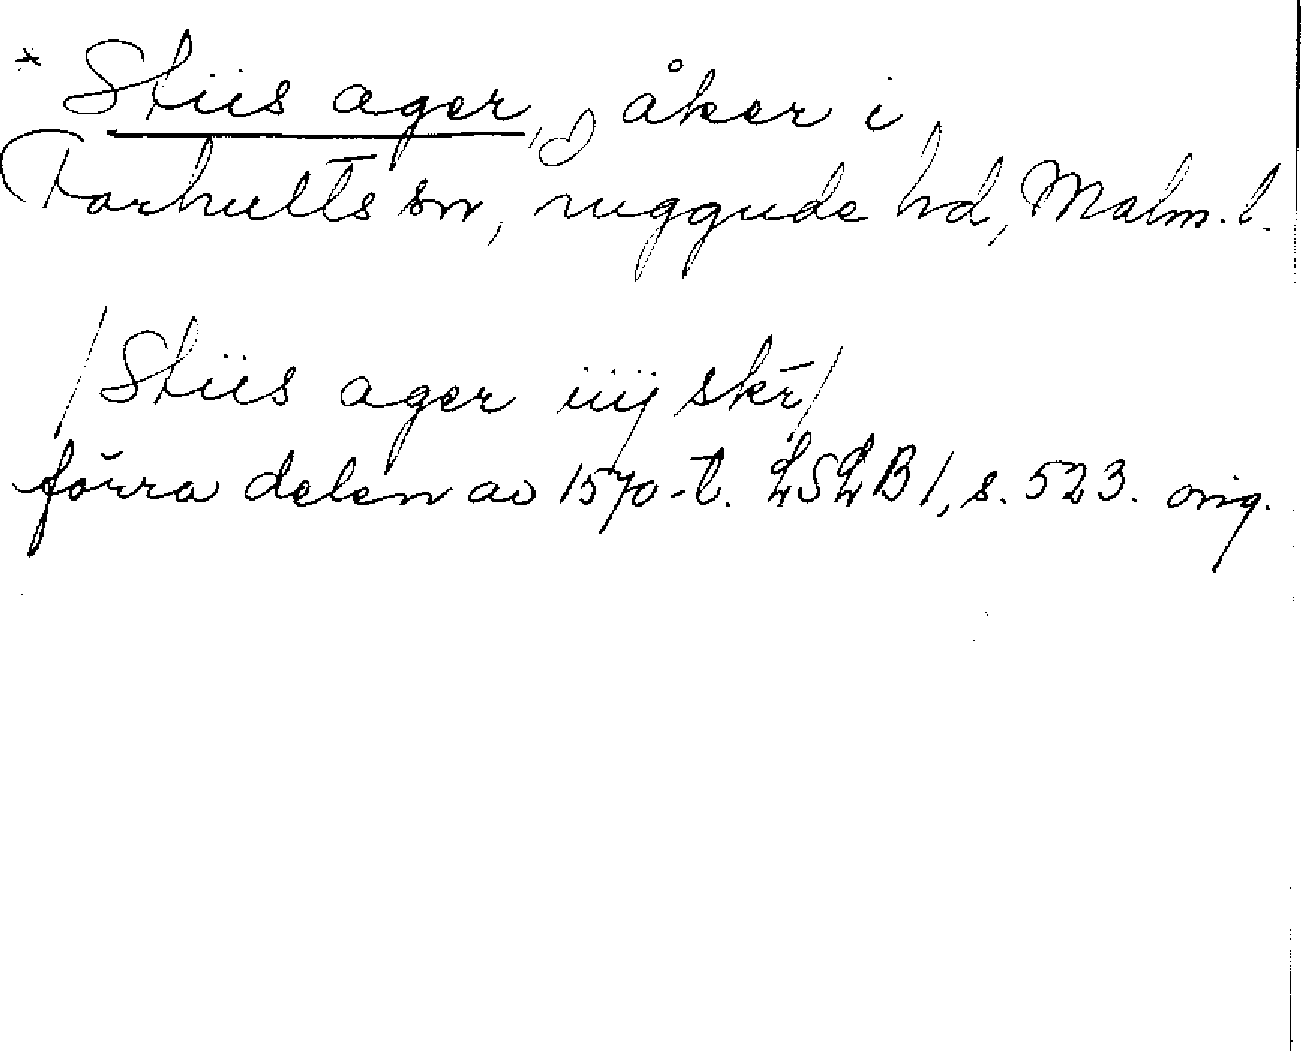 * Stiis ager, åker i
Farhults sn, Luggude hd, Malm. l.
/Stiis ager iiij skr/
förra delen av 1570-t. LSLB1, s. 523. orig.